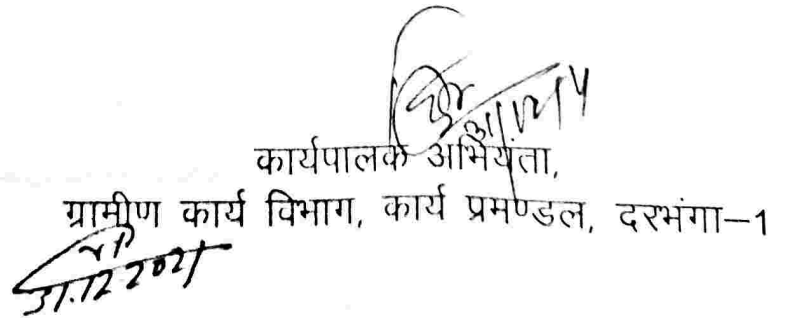 कार्यपालक अभियंता,
ग्रामीण कार्य विभाग, कार्य प्रमण्डल, दरभंगा–1
31.12.2021